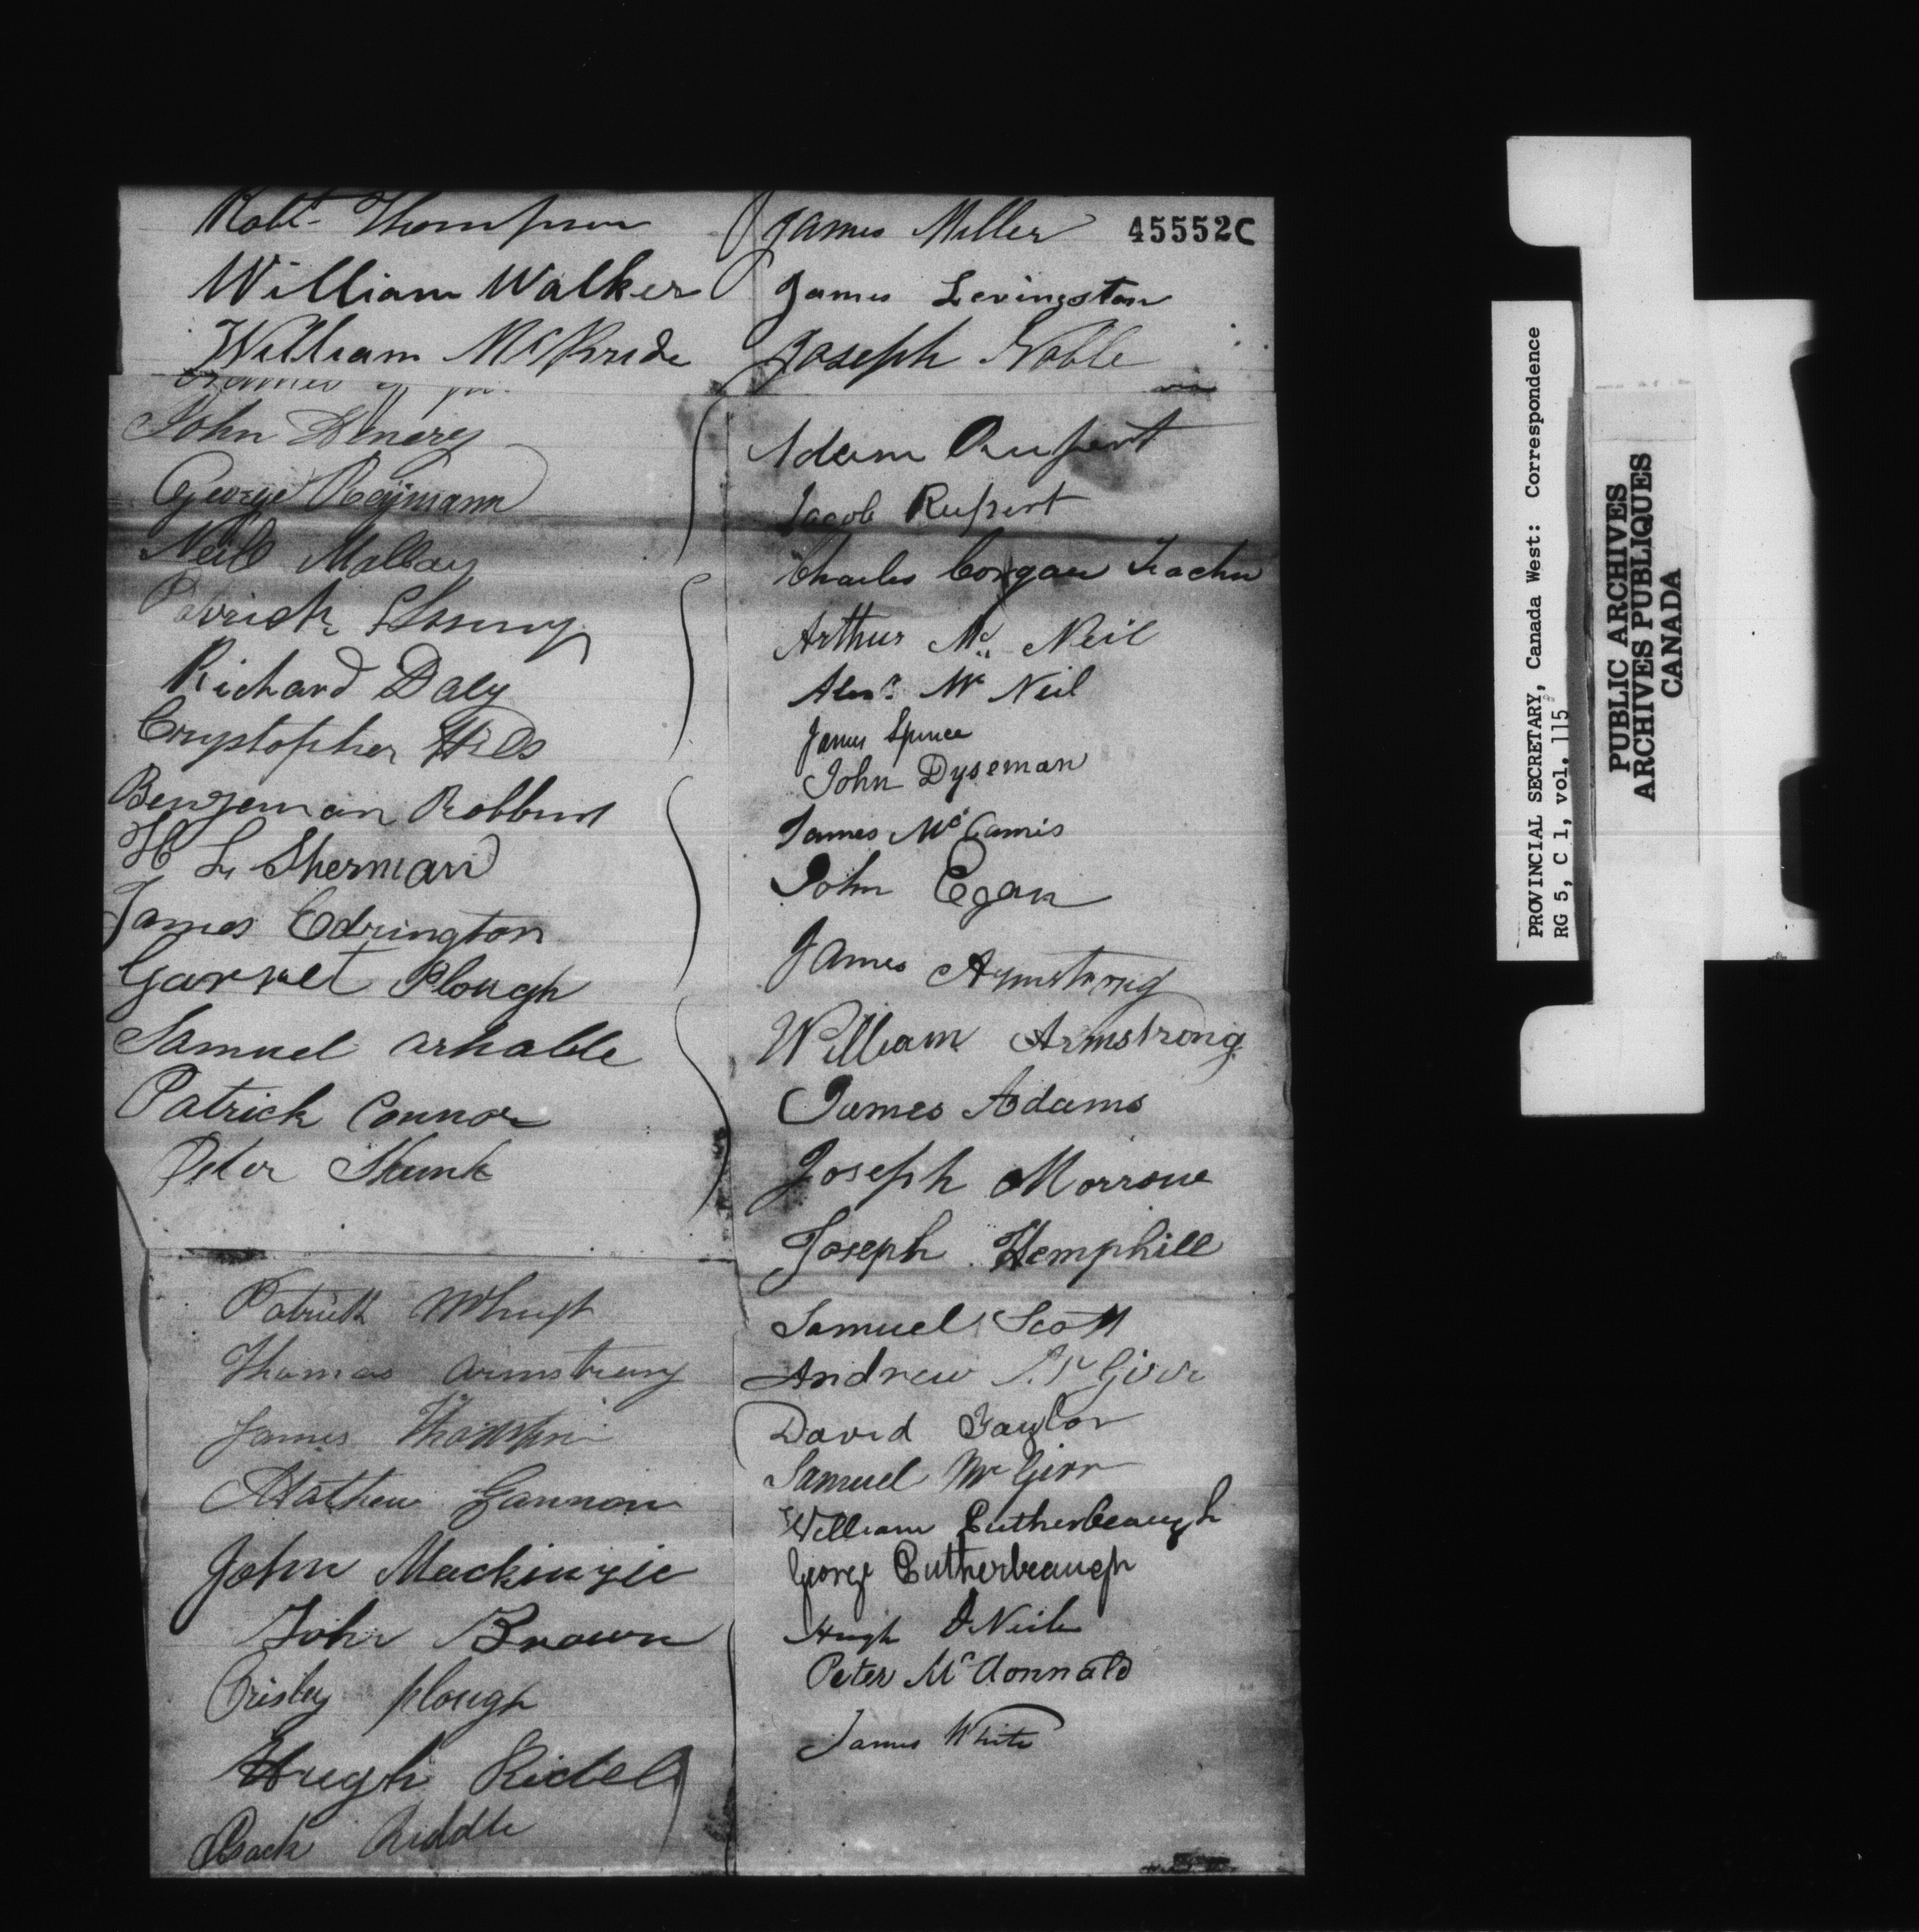 45552C
Robt Thompson
William Walker
William McBride
John Emery
George Reymann
Neil Mallay
Richard Daly
Crystopher Hids
Bengeman Robbins
H L Sherman
James Edrington
Garret Plough
Samuel arhalble
Patrick Connor
Peter Shunk
Patrick
Thomas Armstrong
James Thompson
Mathew Gannon
John Mackinzie
John Brown
Crisley plough
Hugh Ridel
Isack Riddle
James Miller
James Levingston
Joseph Noble
Adam Rupert
Jacob Rupert
Charles Corgan Teacher
Arthur Mc Neil
Alexr Mc Neil
James Spence
John Dyseman
James McCamis
John Egan
James Armstrong
William Armstrong
James Adams
Joseph Morrow
Joseph Hemphill
Samuel Scott
Andrew McGirr
David Taylor
Samuel McGirr
William Puterbeaugh
George Puterbeaugh
Hugh O Neil
Peter McDonnald
James White
PROVINCIAL SECRETARY, Canada West: Correspondence
RG 5, C 1, vol. 115
PUBLIC ARCHIVES
ARCHIVES PUBLIQUES
CANADA